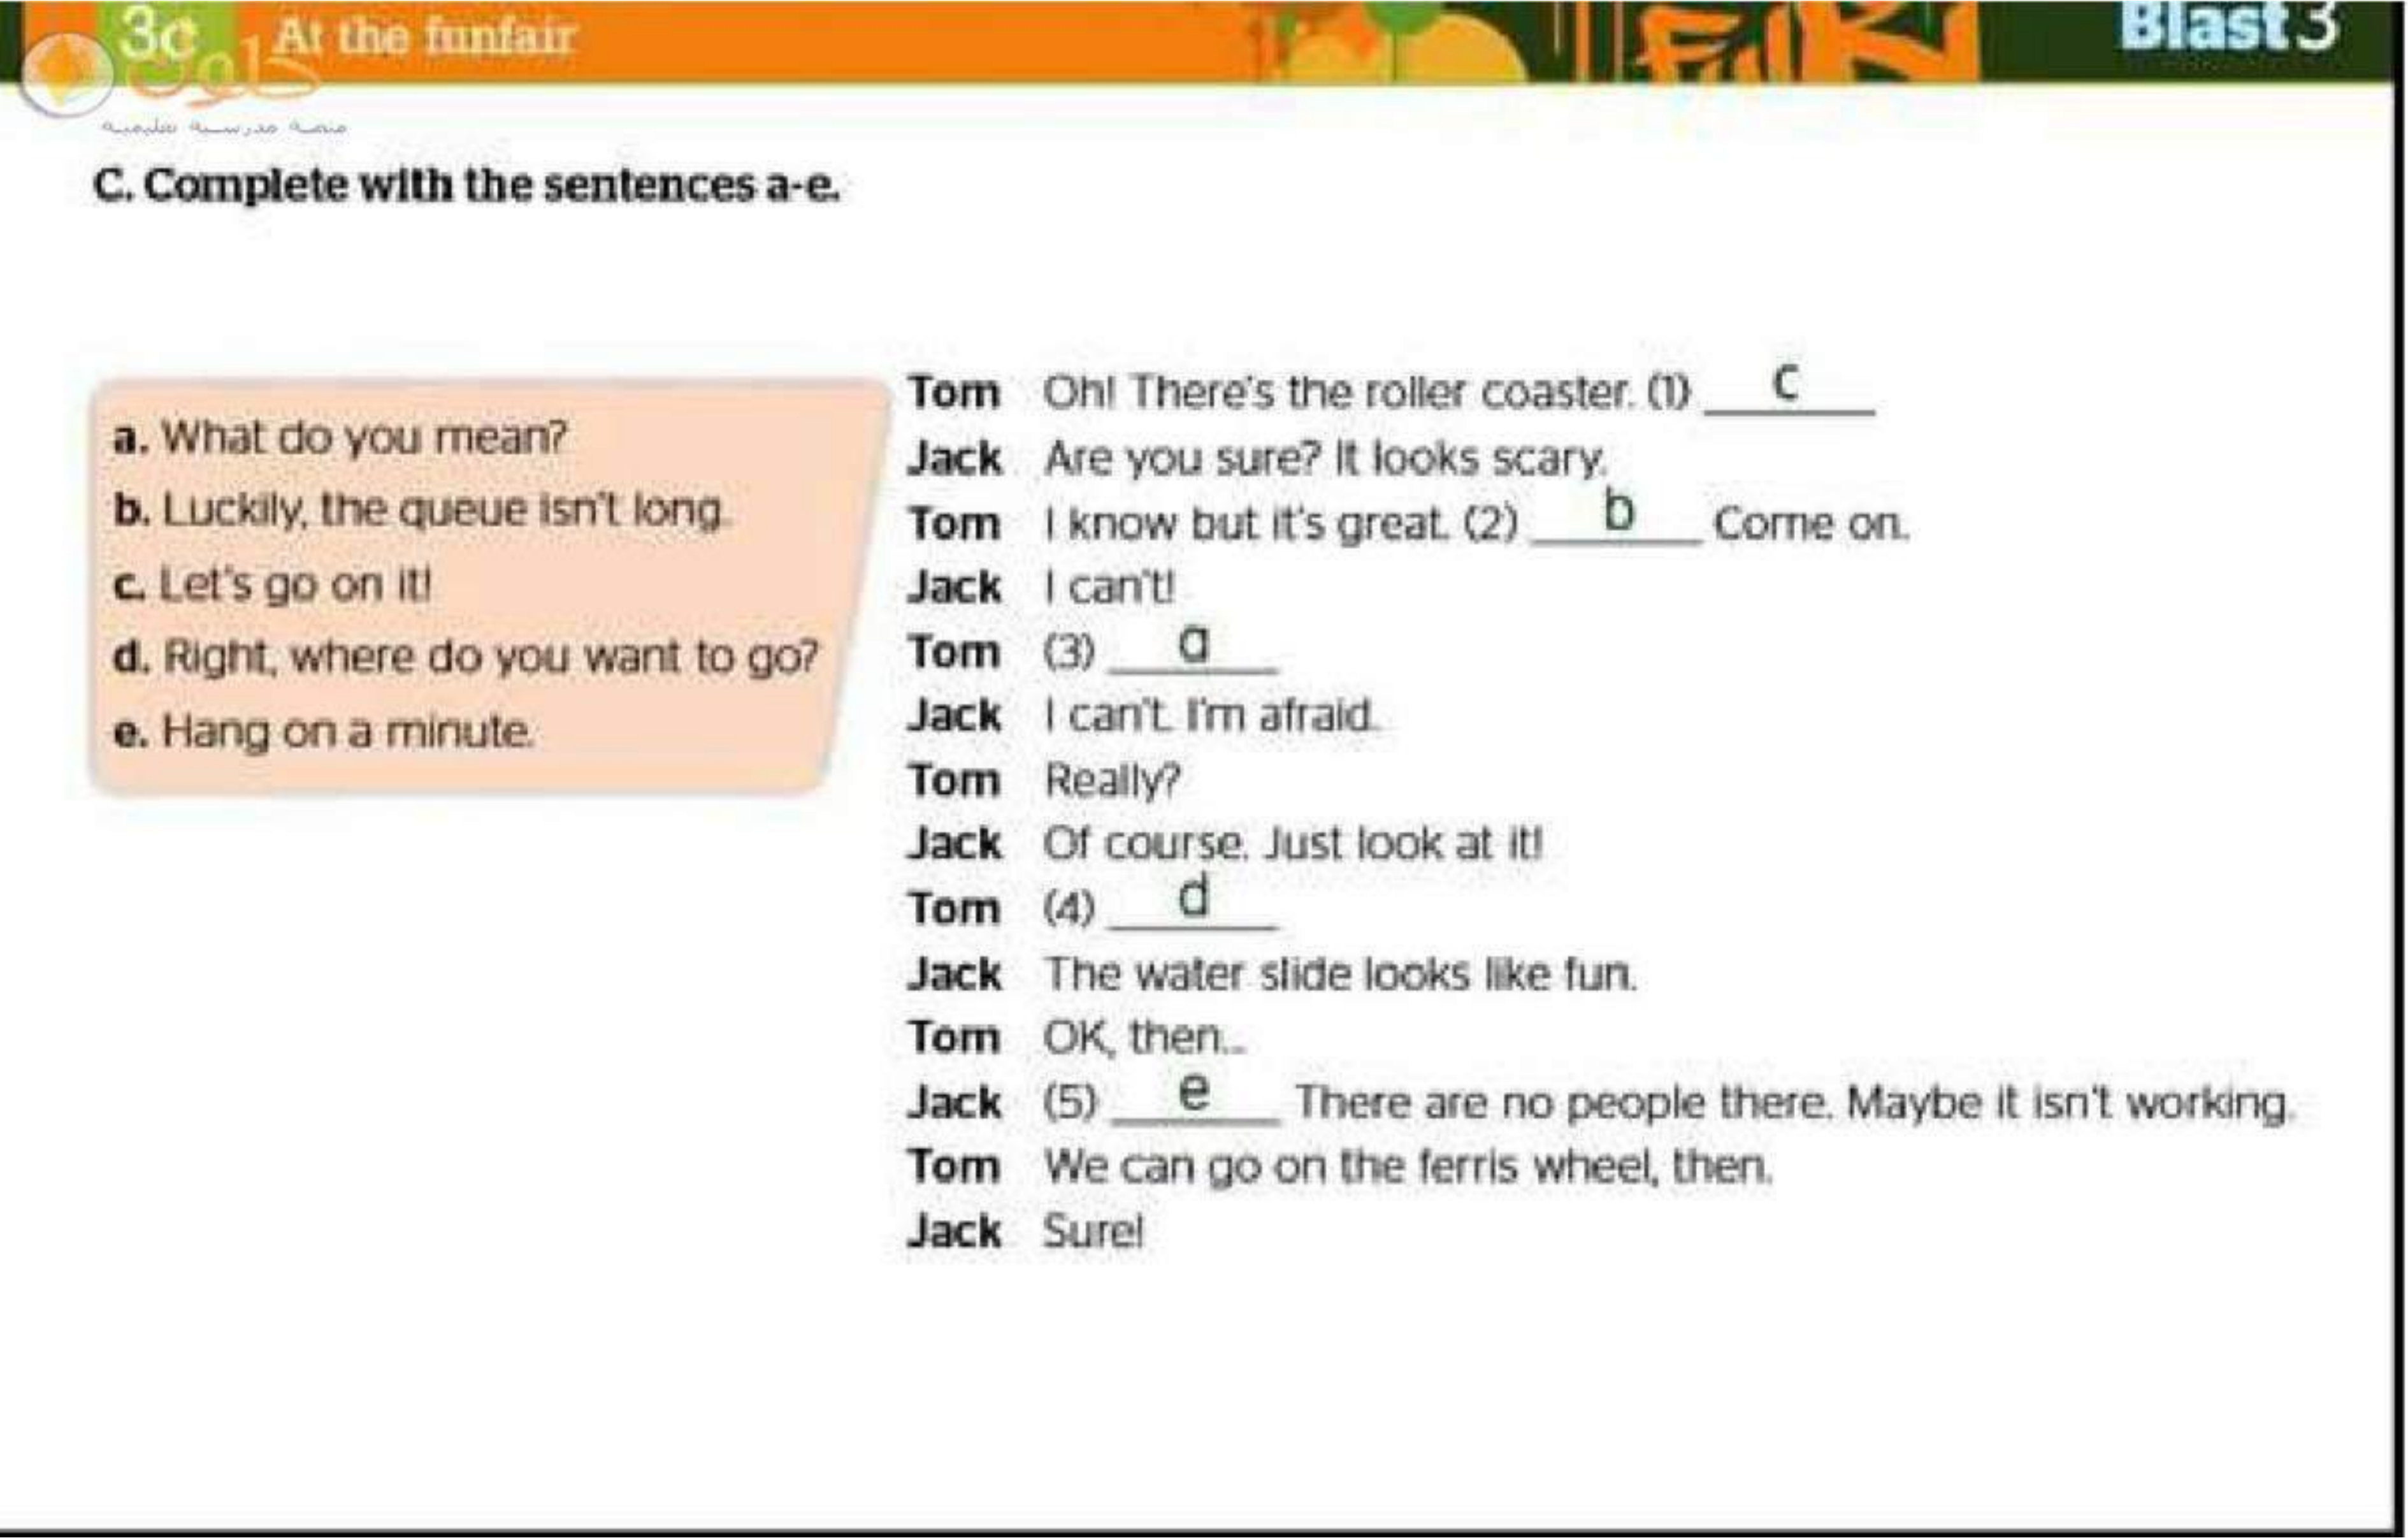 3c At the funfair
Blast 3
حلول
منصة مدرسية تعليمية
C. Complete with the sentences a-e.
a. What do you mean?
b. Luckily, the queue isn't long.
c. Let's go on it!
d. Right, where do you want to go?
e. Hang on a minute.
Tom Oh! There's the roller coaster. (1) c
Jack Are you sure? It looks scary.
Tom I know but it's great. (2) b Come on.
Jack I can't!
Tom (3) a
Jack I can't. I'm afraid.
Tom Really?
Jack Of course. Just look at it!
Tom (4) d
Jack The water slide looks like fun.
Tom OK, then...
Jack (5) e There are no people there. Maybe it isn't working.
Tom We can go on the ferris wheel, then.
Jack Sure!